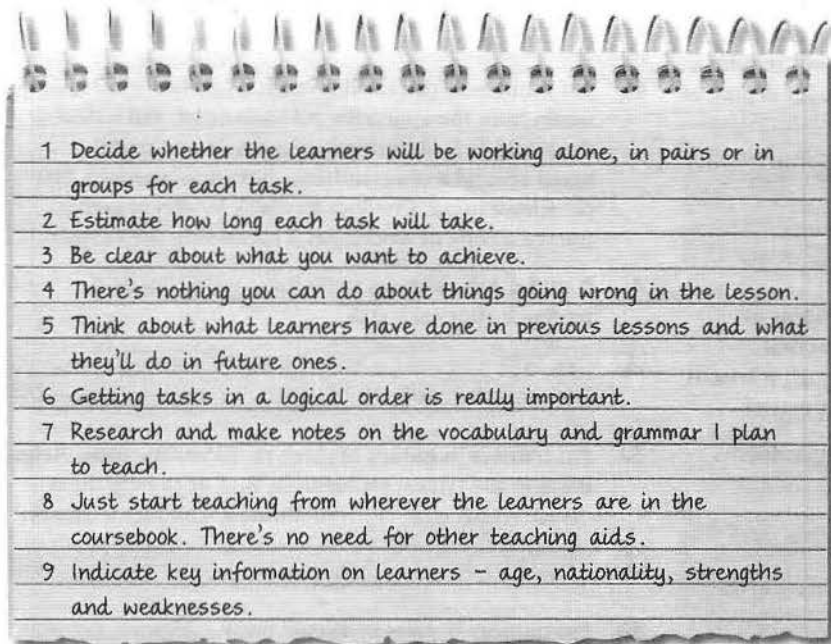 1 Decide whether the learners will be working alone, in pairs or in
groups for each task.
2 Estimate how long each task will take.
3 Be clear about what you want to achieve.
4 There's nothing you can do about things going wrong in the lesson.
5 Think about what learners have done in previous lessons and what
they'll do in future ones.
6 Getting tasks in a logical order is really important.
7 Research and make notes on the vocabulary and grammar I plan
to teach.
8 Just start teaching from wherever the learners are in the
coursebook. There's no need for other teaching aids.
9 Indicate key information on learners – age, nationality, strengths
and weaknesses.